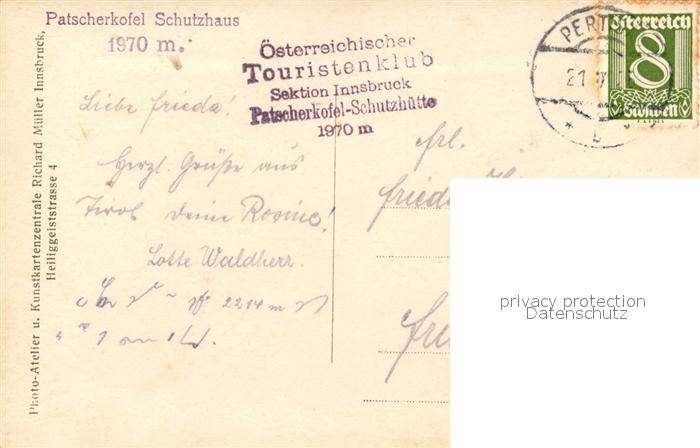 Patscherkofel Schutzhaus
1970 m.
Österreichischer
Touristenklub
Sektion Innsbruck
Patscherkofel-Schutzhütte
1970 m
PERT
21
b
Österreich
8
Groschen
Liebe Frieda!
Herzl. Grüße aus
Tirol deine Rosine!
Lotte Waldherr.
2214 m
Frl.
Frieda
Photo-Atelier u. Kunstkartenzentrale Richard Müller Innsbruck,
Heiliggeiststrasse 4
privacy protection
Datenschutz